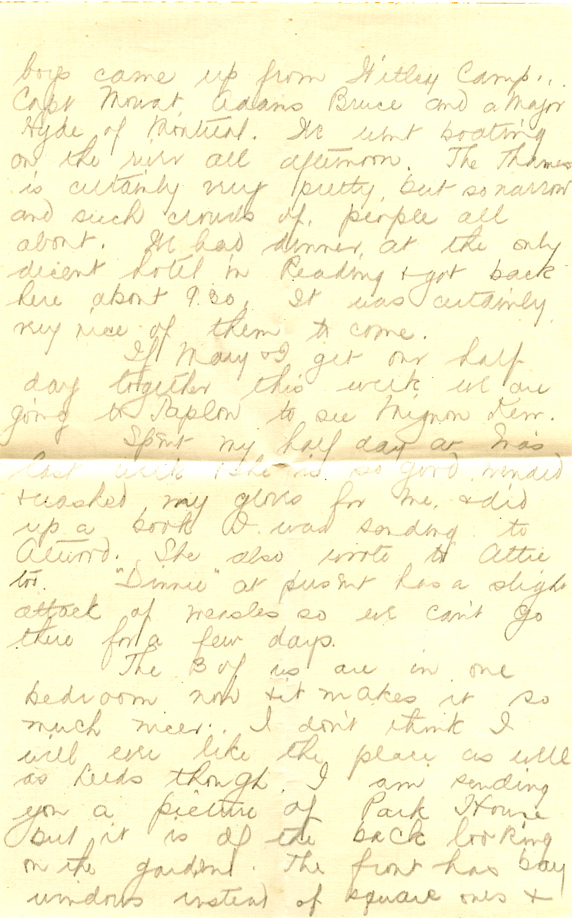 boys came up from Witley Camp..
Capt Mowat, Adams Bruce and a Major
Hyde of Montreal. We went boating
on the river all afternoon. The Thames
is certainly very pretty, but so narrow
and such crowds of, people all
about. We had dinner, at the only
decent hotel in Reading & got back
here about 9.30. It was certainly
very nice of them to come.
If Mary & I get our half
day together this week we are
going to Taplow to see Mignon Kerr.
Spent my half day at
last week. She is so good minded
& washed my gloves for me, & did
up a book I was sending to
She also wrote to Attie
too. "Dinnie" at present has a slight
attack of measles so we can't go
there for a few days.
The 3 of us are in one
bedroom now & it makes it so
much nicer. I don't think I
will ever like the place as well
as Leeds though. I am sending
you a picture of Park House
but it is of the back looking
on the gardens. The front has bay
windows instead of square ones &